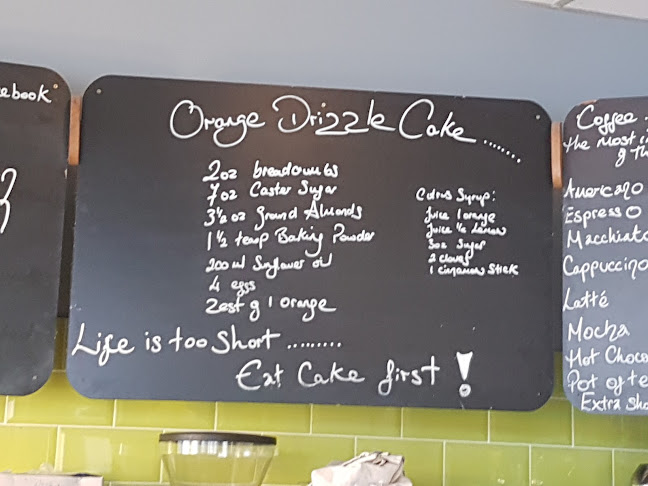 ebook
Orange Drizzle Cake.......
2oz breadcumbs
7oz Caster Sugar
3½oz ground Almonds
1½ tesp Baking Powder
200ml Sunflower oil
4 eggs
Zest of 1 orange
Citrus Syrup:
Juice 1 orange
Juice ½ Lemon
3oz Sugar
2 cloves
1 cinnamon Stick
Life is too Short.........
Eat Cake first !
Coffee
the most i
of th
Americano
Espresso
Macchiato
Cappuccino
Latté
Mocha
Hot Choco
Pot of te
Extra Sho